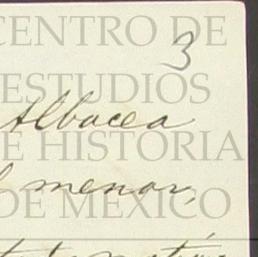 CENTRO DE
3
ESTUDIOS
Albacea
E HISTORIA
menor,
DE MEXICO